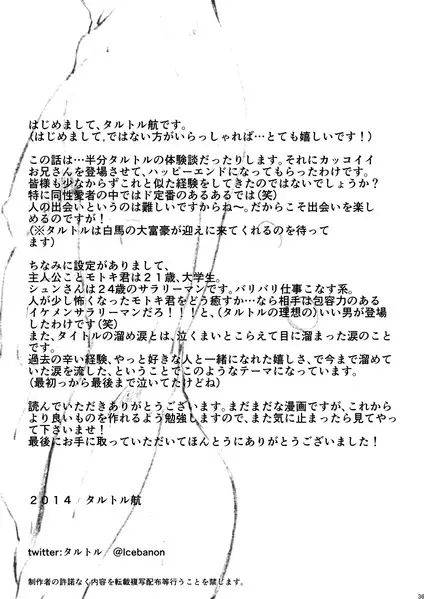 はじめまして、タルトル航です。
(はじめまして，ではない方がいらっしゃれば…とても嬉しいです！)
この話は…半分タルトルの体験談だったりします。それにカッコイイ
お兄さんを登場させて、ハッピーエンドになってもらったわけです。
皆様も少なからずこれと似た経験をしてきたのではないでしょうか？
特に同性愛者の中ではド定番のあるあるでは(笑)
人の出会いというのは難しいですからね〜。だからこそ出会いを楽し
めるのですが！
(※タルトルは白馬の大富豪が迎えに来てくれるのを待って
ます)
ちなみに設定がありまして、
主人公ことモトキ君は２１歳、大学生。
シュンさんは２４歳のサラリーマンです。バリバリ仕事こなす系。
人が少し怖くなったモトキ君をどう癒すか…なら相手は包容力のある
イケメンサラリーマンだろ！！！と、(タルトルの理想の)いい男が登場
したわけです(笑)
また、タイトルの溜め涙とは、泣くまいとこらえて目に溜まった涙のこと
です。
過去の辛い経験、やっと好きな人と一緒になれた嬉しさ、で今まで溜めて
いた涙を流した、ということでこのようなテーマになっています。
(最初っから最後まで泣いてたけどね)
読んでいただきありがとうございます。まだまだな漫画ですが、これから
より良いものを作れるよう勉強しますので、また気に止まったら見てやっ
て下さいませ！
最後にお手に取っていただいてほんとうにありがとうございました！
２０１４　タルトル航
twitter:タルトル　@Icebanon
制作者の許諾なく内容を転載複写配布等行うことを禁じます。
36